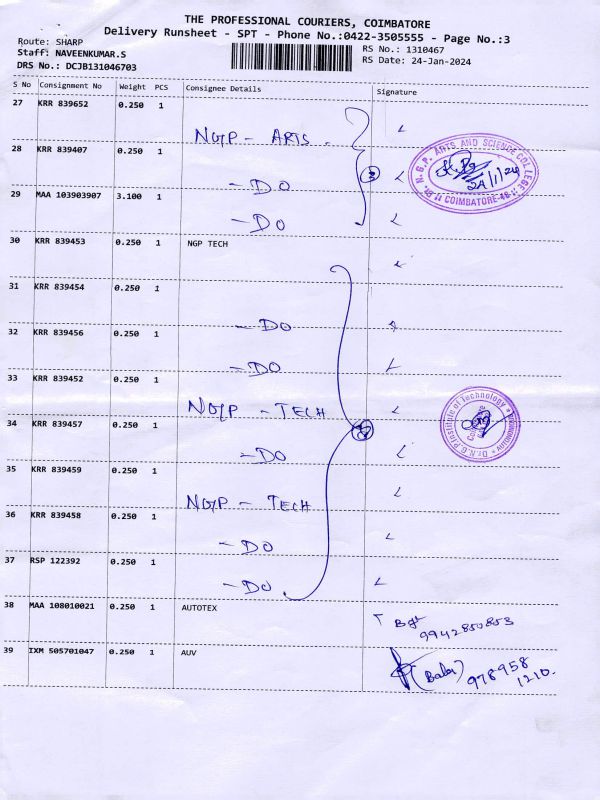 THE PROFESSIONAL COURIERS, COIMBATORE
Delivery Runsheet - SPT - Phone No.:0422-3505555 - Page No.:3
Route: SHARP
Staff: NAVEENKUMAR.S
DRS No.: DCJB131046703
RS No.: 1310467
RS Date: 24-Jan-2024
S No Consignment No Weight PCS Consignee Details Signature
27 KRR 839652 0.250 1 NGP - ARTS.
28 KRR 839407 0.250 1 - DO
29 MAA 103903907 3.100 1 - DO
3
Dr. N.G.P. ARTS AND SCIENCE COLLEGE
COIMBATORE-48
24/1/24
30 KRR 839453 0.250 1 NGP TECH
31 KRR 839454 0.250 1 - DO
32 KRR 839456 0.250 1 - DO
33 KRR 839452 0.250 1 NGP - TECH
34 KRR 839457 0.250 1 - DO
35 KRR 839459 0.250 1 NGP - TECH
36 KRR 839458 0.250 1 - DO
37 RSP 122392 0.250 1 - DO.
Dr.N.G.P.Institute of Technology
38 MAA 108010021 0.250 1 AUTOTEX
9942850853
39 IXM 505701047 0.250 1 AUV
(Baba) 978958
1210.